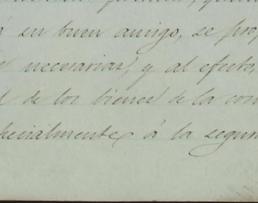 á su buen amigo, se pro
necesarias, y al efecto,
de los bienes de la con
pecialmente á la segun